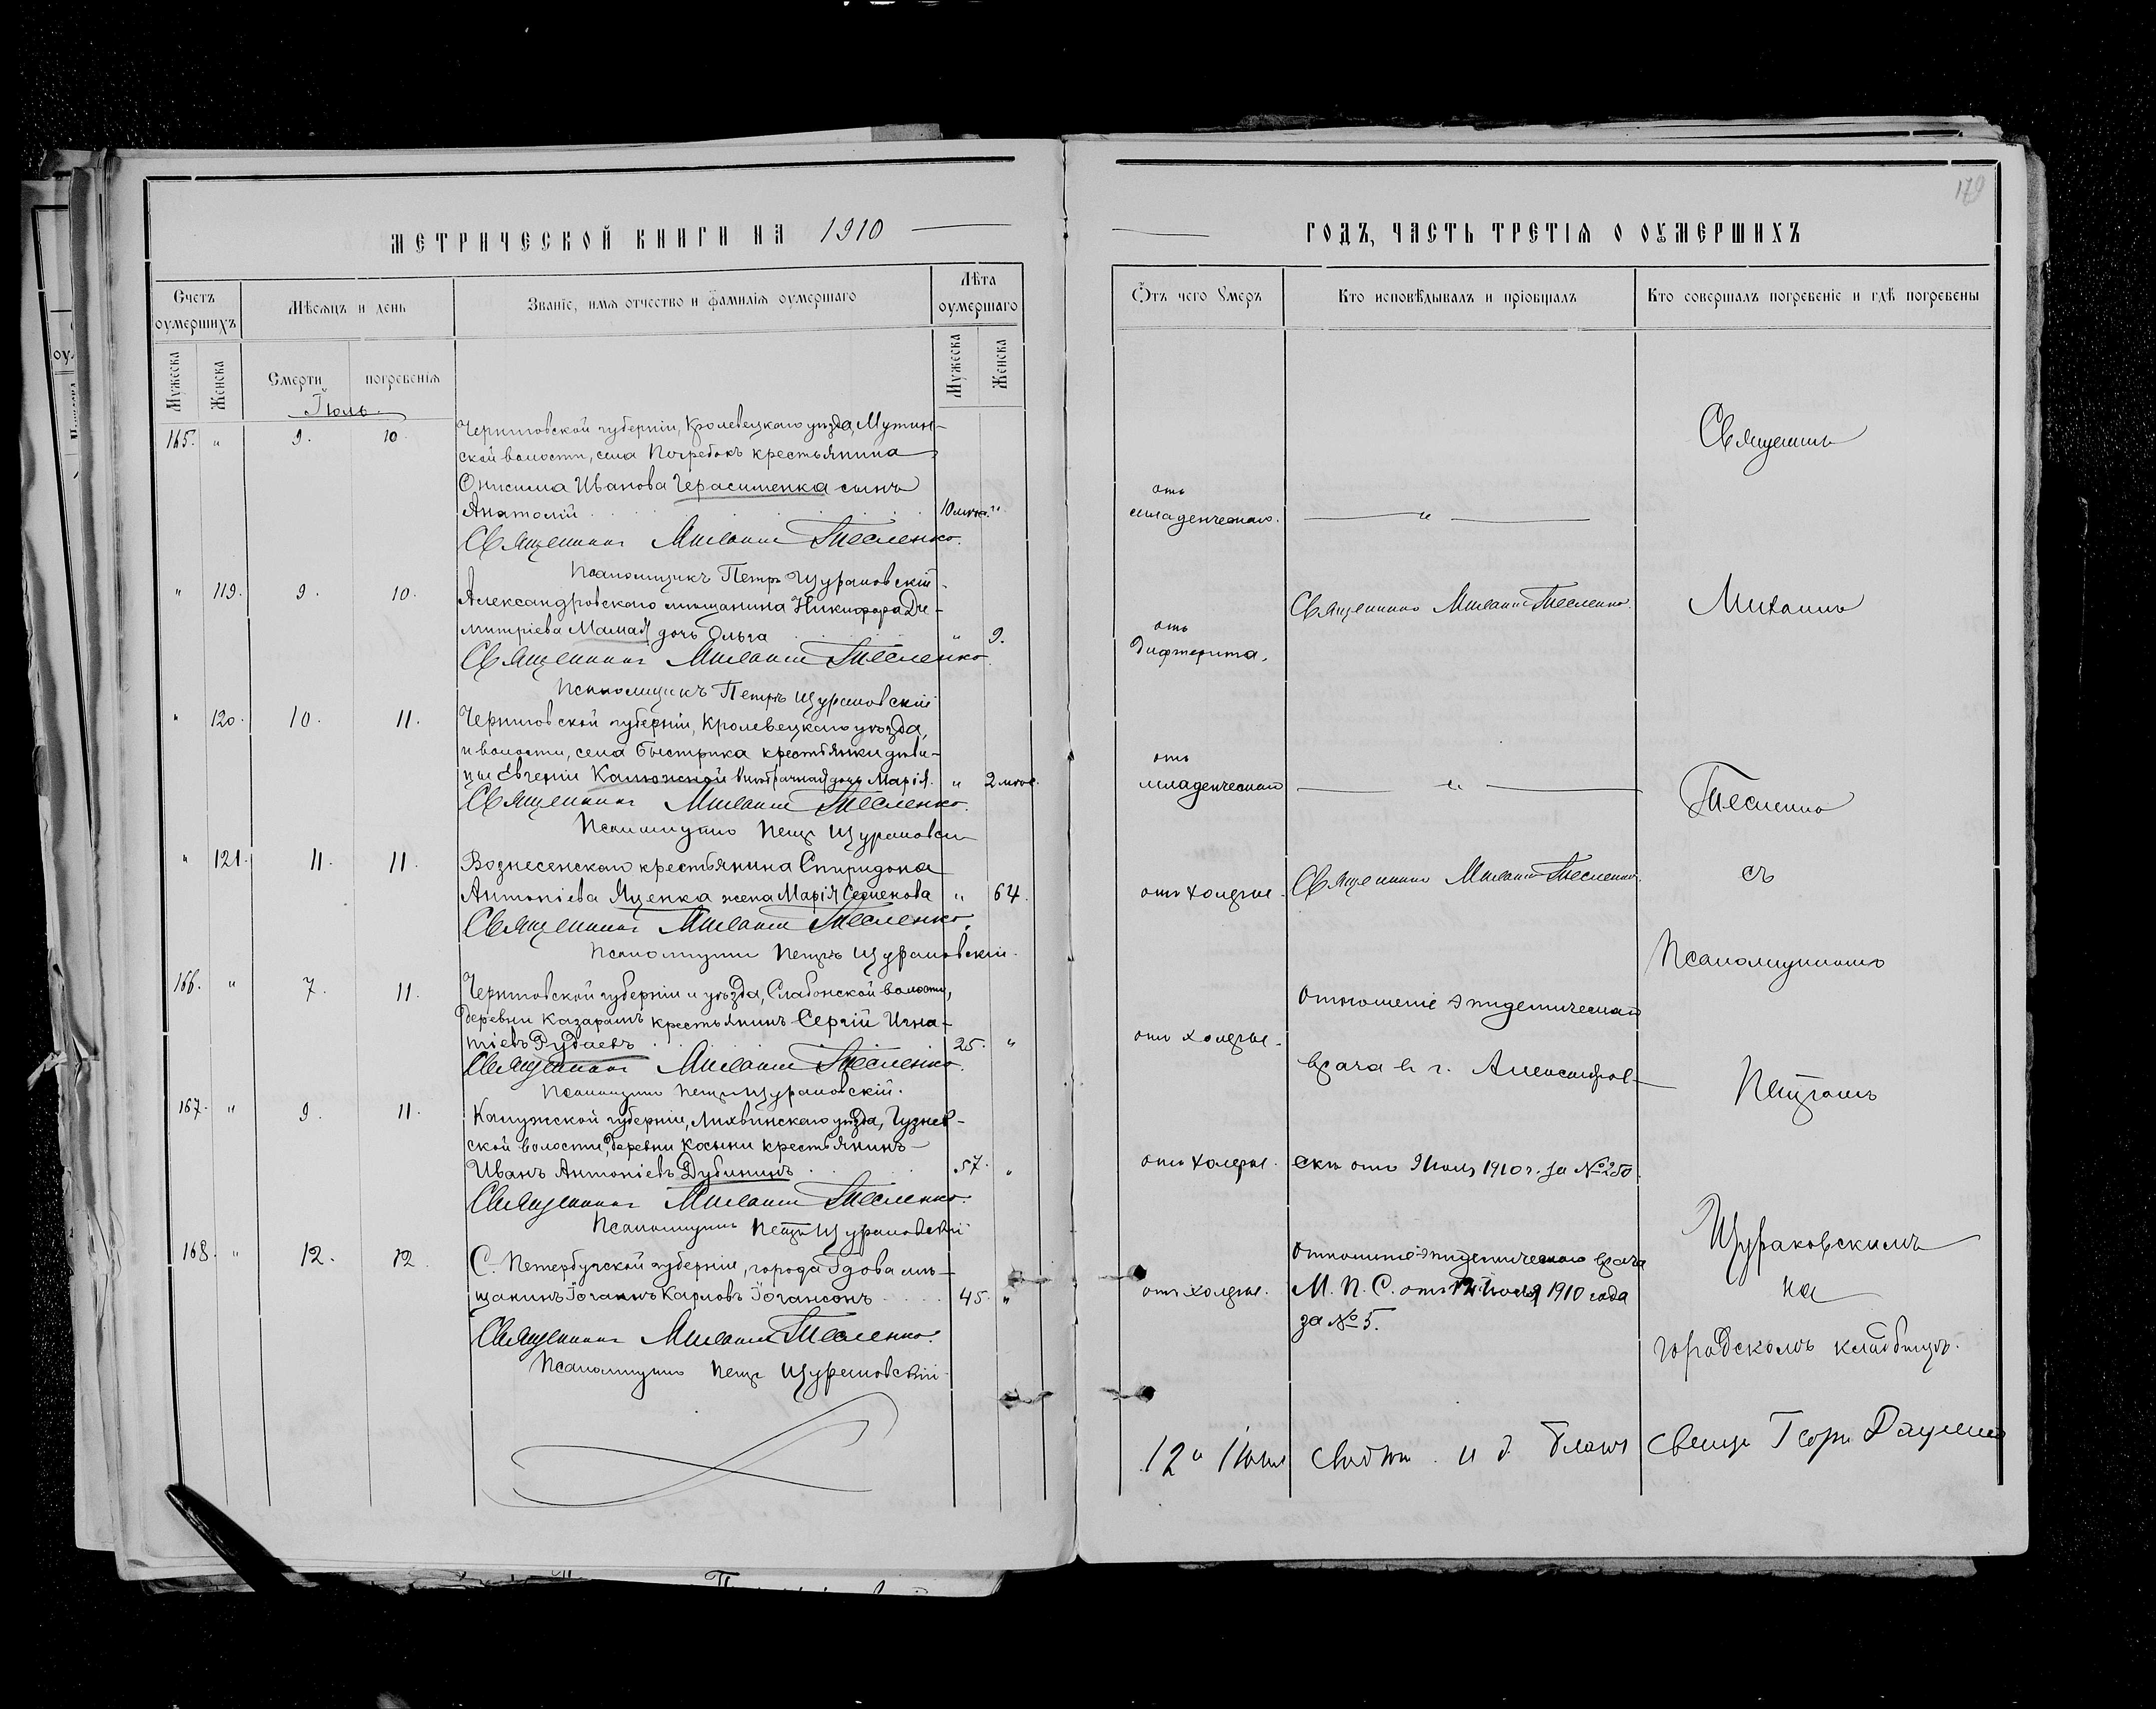 МЕТРИЧЕСКОЙ КНИГИ НА 1910
Счетъ оумершихъ
Мѣсяцъ и день
Званіе, имя отчество и фамилія оумершаго
Лѣта оумершаго
Мужеска
Женска
Смерти
погребенія
Мужеска
Женска
Іюль
165. " 9. 10. Черниговской губерніи, Кролевецкаго уѣзда, Мутин-
ской волости, села Погребокъ крестьянина
Онисима Иванова Герасименка сынъ
Анатолій 10 мѣс. "
Священникъ Михаилъ Тесленко.
Псаломщикъ Петръ Щураковскій.
" 119. 9. 10. Александровскаго мѣщанина Никифора Ди-
митріева Мамая дочь Ольга " 9.
Священникъ Михаилъ Тесленко.
Псаломщикъ Петръ Щураковскій
" 120. 10. 11. Черниговской губерніи, Кролевецкаго уѣзда,
и волости, села Быстрика крестьянки дѣви-
цы Евгеніи Калюжной внѣбрачная дочь Марія. " 2 мѣс.
Священникъ Михаилъ Тесленко.
Псаломщикъ Петръ Щураковскій
" 121. 11. 11. Вознесенскаго крестьянина Спиридона
Антоніева Яценка жена Марія Семенова " 64.
Священникъ Михаилъ Тесленко.
Псаломщикъ Петръ Щураковскій.
166. " 7. 11. Черниговской губерніи и уѣзда, Слабонской волости,
деревни Казарамъ крестьянинъ Сергій Игна-
тіевъ Рудаевъ 25. "
Священникъ Михаилъ Тесленко.
Псаломщикъ Петръ Щураковскій.
167. " 9. 11. Калужской губерніи, Лихвинскаго уѣзда,
ской волости, деревни Косыни крестьянинъ
Иванъ Антоніевъ Дубининъ 57. "
Священникъ Михаилъ Тесленко.
Псаломщикъ Петръ Щураковскій
168. " 12. 12. С. Петербургской губерніи, города Гдова мѣ-
щанинъ Іоганнъ Карловъ Іогансонъ 45. "
Священникъ Михаилъ Тесленко.
Псаломщикъ Петръ Щураковскій
179
ГОДЪ, ЧАСТЬ ТРЕТІЯ О ОУМЕРШИХЪ
Ѿтъ чего Умеръ
Кто исповѣдывалъ и пріобщалъ
Кто совершалъ погребеніе и гдѣ погребены
отъ
младенческаго. "
отъ
дифтерита. Священникъ Михаилъ Тесленко.
отъ
младенческаго "
отъ холеры. Священникъ Михаилъ Тесленко.
отъ холеры. Отношеніе эпидемическаго
врача въ г. Александров-
отъ холеры. скѣ отъ 9 Іюля 1910 г. за № 250.
отъ холеры. Отношеніе эпидемическаго врача
М. П. С. отъ 12 Іюля 1910 года
за № 5.
Священникъ
Михаилъ
Тесленко
съ
Псаломщикомъ
Петромъ
Щураковскимъ
на
городскомъ кладбищѣ.
12 Іюля